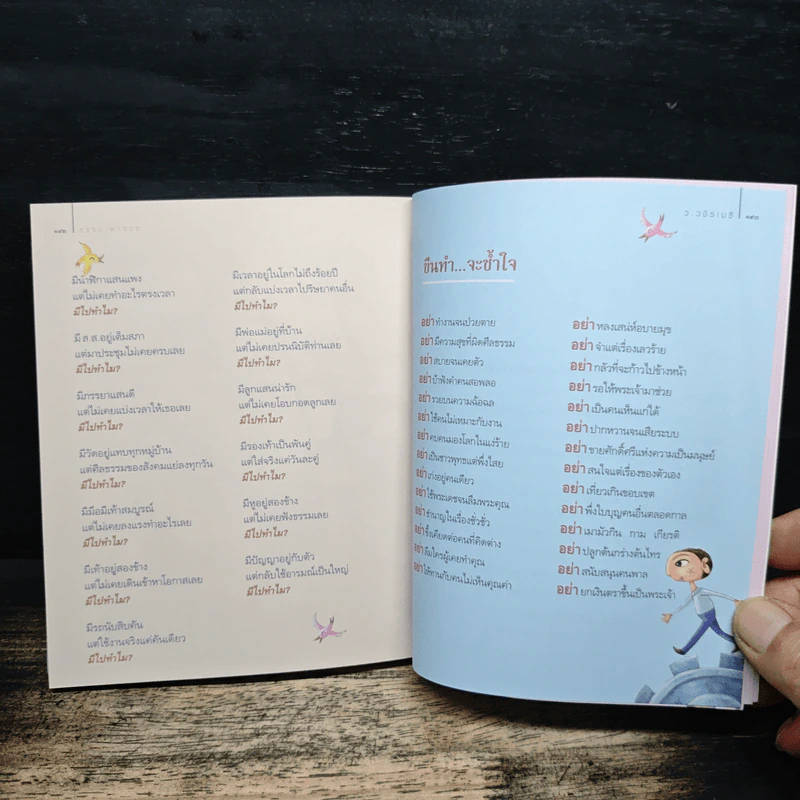 ๑๔๒
มีนาฬิกาแสนแพง
แต่ไม่เคยทำอะไรตรงเวลา
มีไปทำไม?
มี ส.ส.อยู่เต็มสภา
แต่มาประชุมไม่เคยครบเลย
มีไปทำไม?
มีภรรยาแสนดี
แต่ไม่เคยแบ่งเวลาให้เธอเลย
มีไปทำไม?
มีวัดอยู่แทบทุกหมู่บ้าน
แต่ศีลธรรมของสังคมแย่ลงทุกวัน
มีไปทำไม?
มีมือมีเท้าสมบูรณ์
แต่ไม่เคยลงแรงทำอะไรเลย
มีไปทำไม?
มีเท้าอยู่สองข้าง
แต่ไม่เคยเดินเข้าหาโอกาสเลย
มีไปทำไม?
มีรถนับสิบคัน
แต่ใช้งานจริงแค่คันเดียว
มีไปทำไม?
มีเวลาอยู่ในโลกไม่ถึงร้อยปี
แต่กลับแบ่งเวลาไปริษยาคนอื่น
มีไปทำไม?
มีพ่อแม่อยู่ที่บ้าน
แต่ไม่เคยปรนนิบัติท่านเลย
มีไปทำไม?
มีลูกแสนน่ารัก
แต่ไม่เคยโอบกอดลูกเลย
มีไปทำไม?
มีรองเท้าเป็นพันคู่
แต่ใส่จริงแค่วันละคู่
มีไปทำไม?
มีหูอยู่สองข้าง
แต่ไม่เคยฟังธรรมเลย
มีไปทำไม?
มีปัญญาอยู่กับตัว
แต่กลับใช้อารมณ์เป็นใหญ่
มีไปทำไม?
ว.วชิรเมธี
๑๔๓
ขืนทำ...จะช้ำใจ
อย่า ทำงานจนป่วยตาย
อย่า มีความสุขที่ผิดศีลธรรม
อย่า สบายจนเคยตัว
อย่า บ้าฟังคำคนสอพลอ
อย่า รวยบนความฉ้อฉล
อย่า ใช้คนไม่เหมาะกับงาน
อย่า คบคนมองโลกในแง่ร้าย
อย่า เป็นชาวพุทธแต่พึ่งไสย
อย่า เก่งอยู่คนเดียว
อย่า ใช้พระเดชจนลืมพระคุณ
อย่า ชำนาญในเรื่องชั่วชั่ว
อย่า ขึ้งเคียดต่อคนที่คิดต่าง
อย่า ลืมใครผู้เคยทำคุณ
อย่า ให้ทานกับคนไม่เห็นคุณค่า
อย่า หลงเสน่ห์อบายมุข
อย่า จำแต่เรื่องเลวร้าย
อย่า กลัวที่จะก้าวไปข้างหน้า
อย่า รอให้พระเจ้ามาช่วย
อย่า เป็นคนเห็นแก่ได้
อย่า ปากหวานจนเสียระบบ
อย่า ขายศักดิ์ศรีแห่งความเป็นมนุษย์
อย่า สนใจแต่เรื่องของตัวเอง
อย่า เที่ยวเกินขอบเขต
อย่า พึ่งใบบุญคนอื่นตลอดกาล
อย่า เมามัวกิน กาม เกียรติ
อย่า ปลูกต้นกร่างต้นไทร
อย่า สนับสนุนคนพาล
อย่า ยกเงินตราขึ้นเป็นพระเจ้า